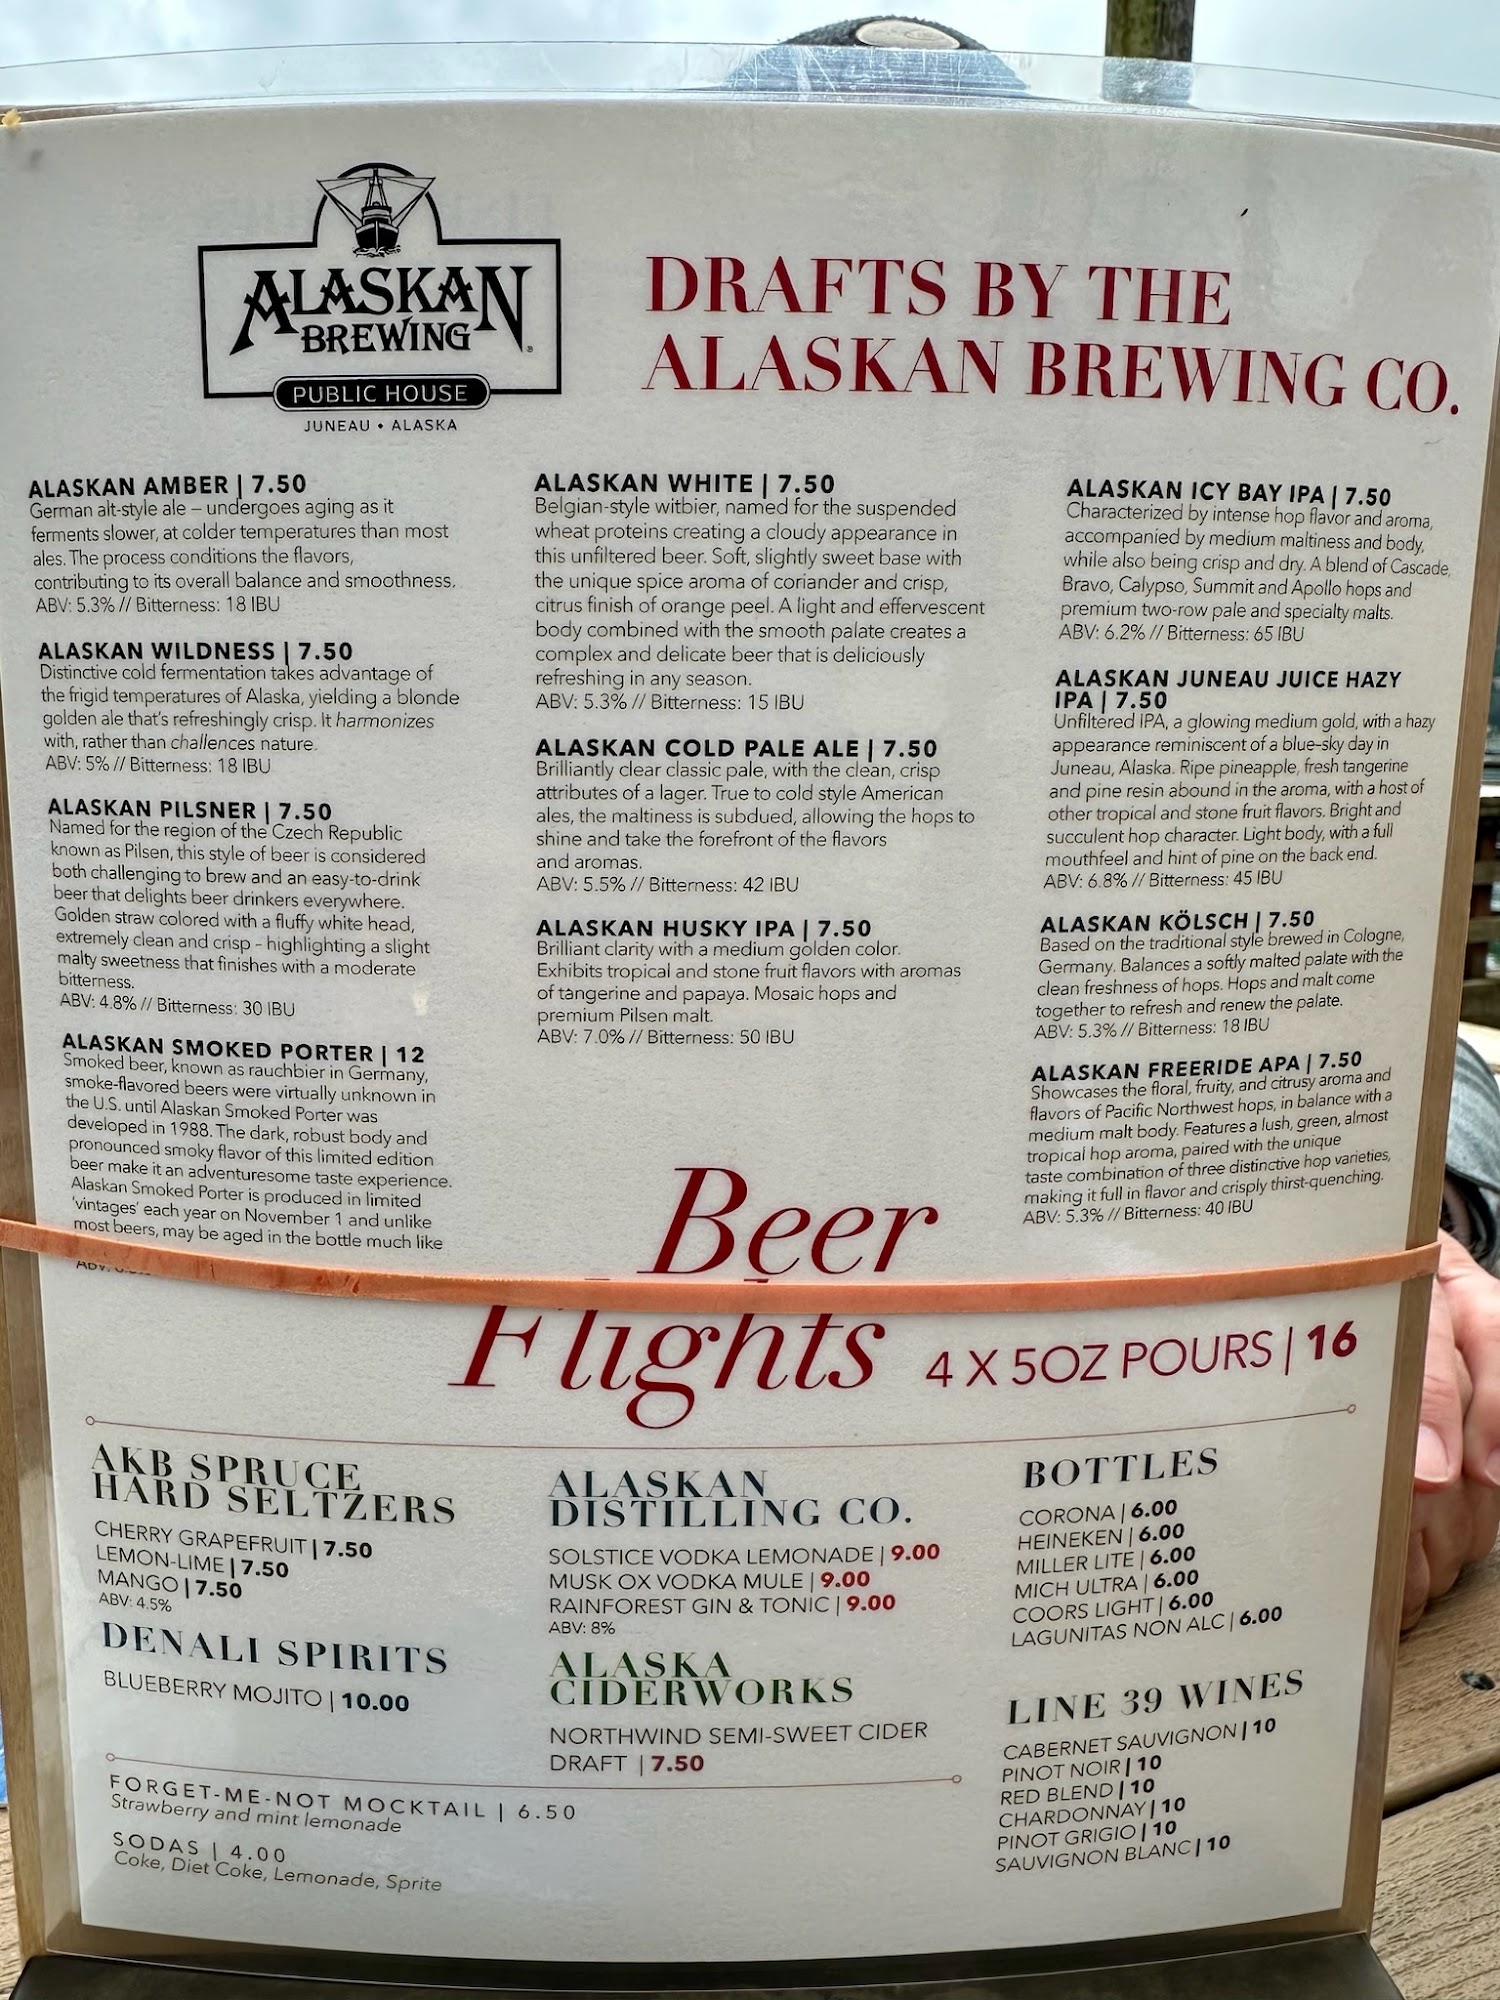 ALASKAN
BREWING
PUBLIC HOUSE
JUNEAU • ALASKA
DRAFTS BY THE
ALASKAN BREWING CO.
ALASKAN AMBER | 7.50
German alt-style ale – undergoes aging as it
ferments slower, at colder temperatures than most
ales. The process conditions the flavors,
contributing to its overall balance and smoothness.
ABV: 5.3% // Bitterness: 18 IBU
ALASKAN WILDNESS | 7.50
Distinctive cold fermentation takes advantage of
the frigid temperatures of Alaska, yielding a blonde
golden ale that's refreshingly crisp. It harmonizes
with, rather than challences nature.
ABV: 5% // Bitterness: 18 IBU
ALASKAN PILSNER | 7.50
Named for the region of the Czech Republic
known as Pilsen, this style of beer is considered
both challenging to brew and an easy-to-drink
beer that delights beer drinkers everywhere.
Golden straw colored with a fluffy white head,
extremely clean and crisp - highlighting a slight
malty sweetness that finishes with a moderate
bitterness.
ABV: 4.8% // Bitterness: 30 IBU
ALASKAN SMOKED PORTER | 12
Smoked beer, known as rauchbier in Germany,
smoke-flavored beers were virtually unknown in
the U.S. until Alaskan Smoked Porter was
developed in 1988. The dark, robust body and
pronounced smoky flavor of this limited edition
beer make it an adventuresome taste experience.
Alaskan Smoked Porter is produced in limited
'vintages' each year on November 1 and unlike
most beers, may be aged in the bottle much like
ABV:
ALASKAN WHITE | 7.50
Belgian-style witbier, named for the suspended
wheat proteins creating a cloudy appearance in
this unfiltered beer. Soft, slightly sweet base with
the unique spice aroma of coriander and crisp,
citrus finish of orange peel. A light and effervescent
body combined with the smooth palate creates a
complex and delicate beer that is deliciously
refreshing in any season.
ABV: 5.3% // Bitterness: 15 IBU
ALASKAN COLD PALE ALE | 7.50
Brilliantly clear classic pale, with the clean, crisp
attributes of a lager. True to cold style American
ales, the maltiness is subdued, allowing the hops to
shine and take the forefront of the flavors
and aromas.
ABV: 5.5% // Bitterness: 42 IBU
ALASKAN HUSKY IPA | 7.50
Brilliant clarity with a medium golden color.
Exhibits tropical and stone fruit flavors with aromas
of tangerine and papaya. Mosaic hops and
premium Pilsen malt.
ABV: 7.0% // Bitterness: 50 IBU
ALASKAN ICY BAY IPA | 7.50
Characterized by intense hop flavor and aroma,
accompanied by medium maltiness and body,
while also being crisp and dry. A blend of Cascade,
Bravo, Calypso, Summit and Apollo hops and
premium two-row pale and specialty malts.
ABV: 6.2% // Bitterness: 65 IBU
ALASKAN JUNEAU JUICE HAZY
IPA | 7.50
Unfiltered IPA, a glowing medium gold, with a hazy
appearance reminiscent of a blue-sky day in
Juneau, Alaska. Ripe pineapple, fresh tangerine
and pine resin abound in the aroma, with a host of
other tropical and stone fruit flavors. Bright and
succulent hop character. Light body, with a full
mouthfeel and hint of pine on the back end.
ABV: 6.8% // Bitterness: 45 IBU
ALASKAN KÖLSCH | 7.50
Based on the traditional style brewed in Cologne,
Germany. Balances a softly malted palate with the
clean freshness of hops. Hops and malt come
together to refresh and renew the palate.
ABV: 5.3% // Bitterness: 18 IBU
ALASKAN FREERIDE APA | 7.50
Showcases the floral, fruity, and citrusy aroma and
flavors of Pacific Northwest hops, in balance with a
medium malt body. Features a lush, green, almost
tropical hop aroma, paired with the unique
taste combination of three distinctive hop varieties,
making it full in flavor and crisply thirst-quenching.
ABV: 5.3% // Bitterness: 40 IBU
Beer
Flights 4 X 5OZ POURS | 16
AKB SPRUCE
HARD SELTZERS
CHERRY GRAPEFRUIT | 7.50
LEMON-LIME | 7.50
MANGO | 7.50
ABV: 4.5%
DENALI SPIRITS
BLUEBERRY MOJITO | 10.00
ALASKAN
DISTILLING CO.
SOLSTICE VODKA LEMONADE | 9.00
MUSK OX VODKA MULE | 9.00
RAINFOREST GIN & TONIC | 9.00
ABV: 8%
ALASKA
CIDERWORKS
NORTHWIND SEMI-SWEET CIDER
DRAFT | 7.50
BOTTLES
CORONA | 6.00
HEINEKEN | 6.00
MILLER LITE | 6.00
MICH ULTRA | 6.00
COORS LIGHT | 6.00
LAGUNITAS NON ALC | 6.00
LINE 39 WINES
CABERNET SAUVIGNON | 10
PINOT NOIR | 10
RED BLEND | 10
CHARDONNAY | 10
PINOT GRIGIO | 10
SAUVIGNON BLANC | 10
FORGET-ME-NOT MOCKTAIL | 6.50
Strawberry and mint lemonade
SODAS | 4.00
Coke, Diet Coke, Lemonade, Sprite